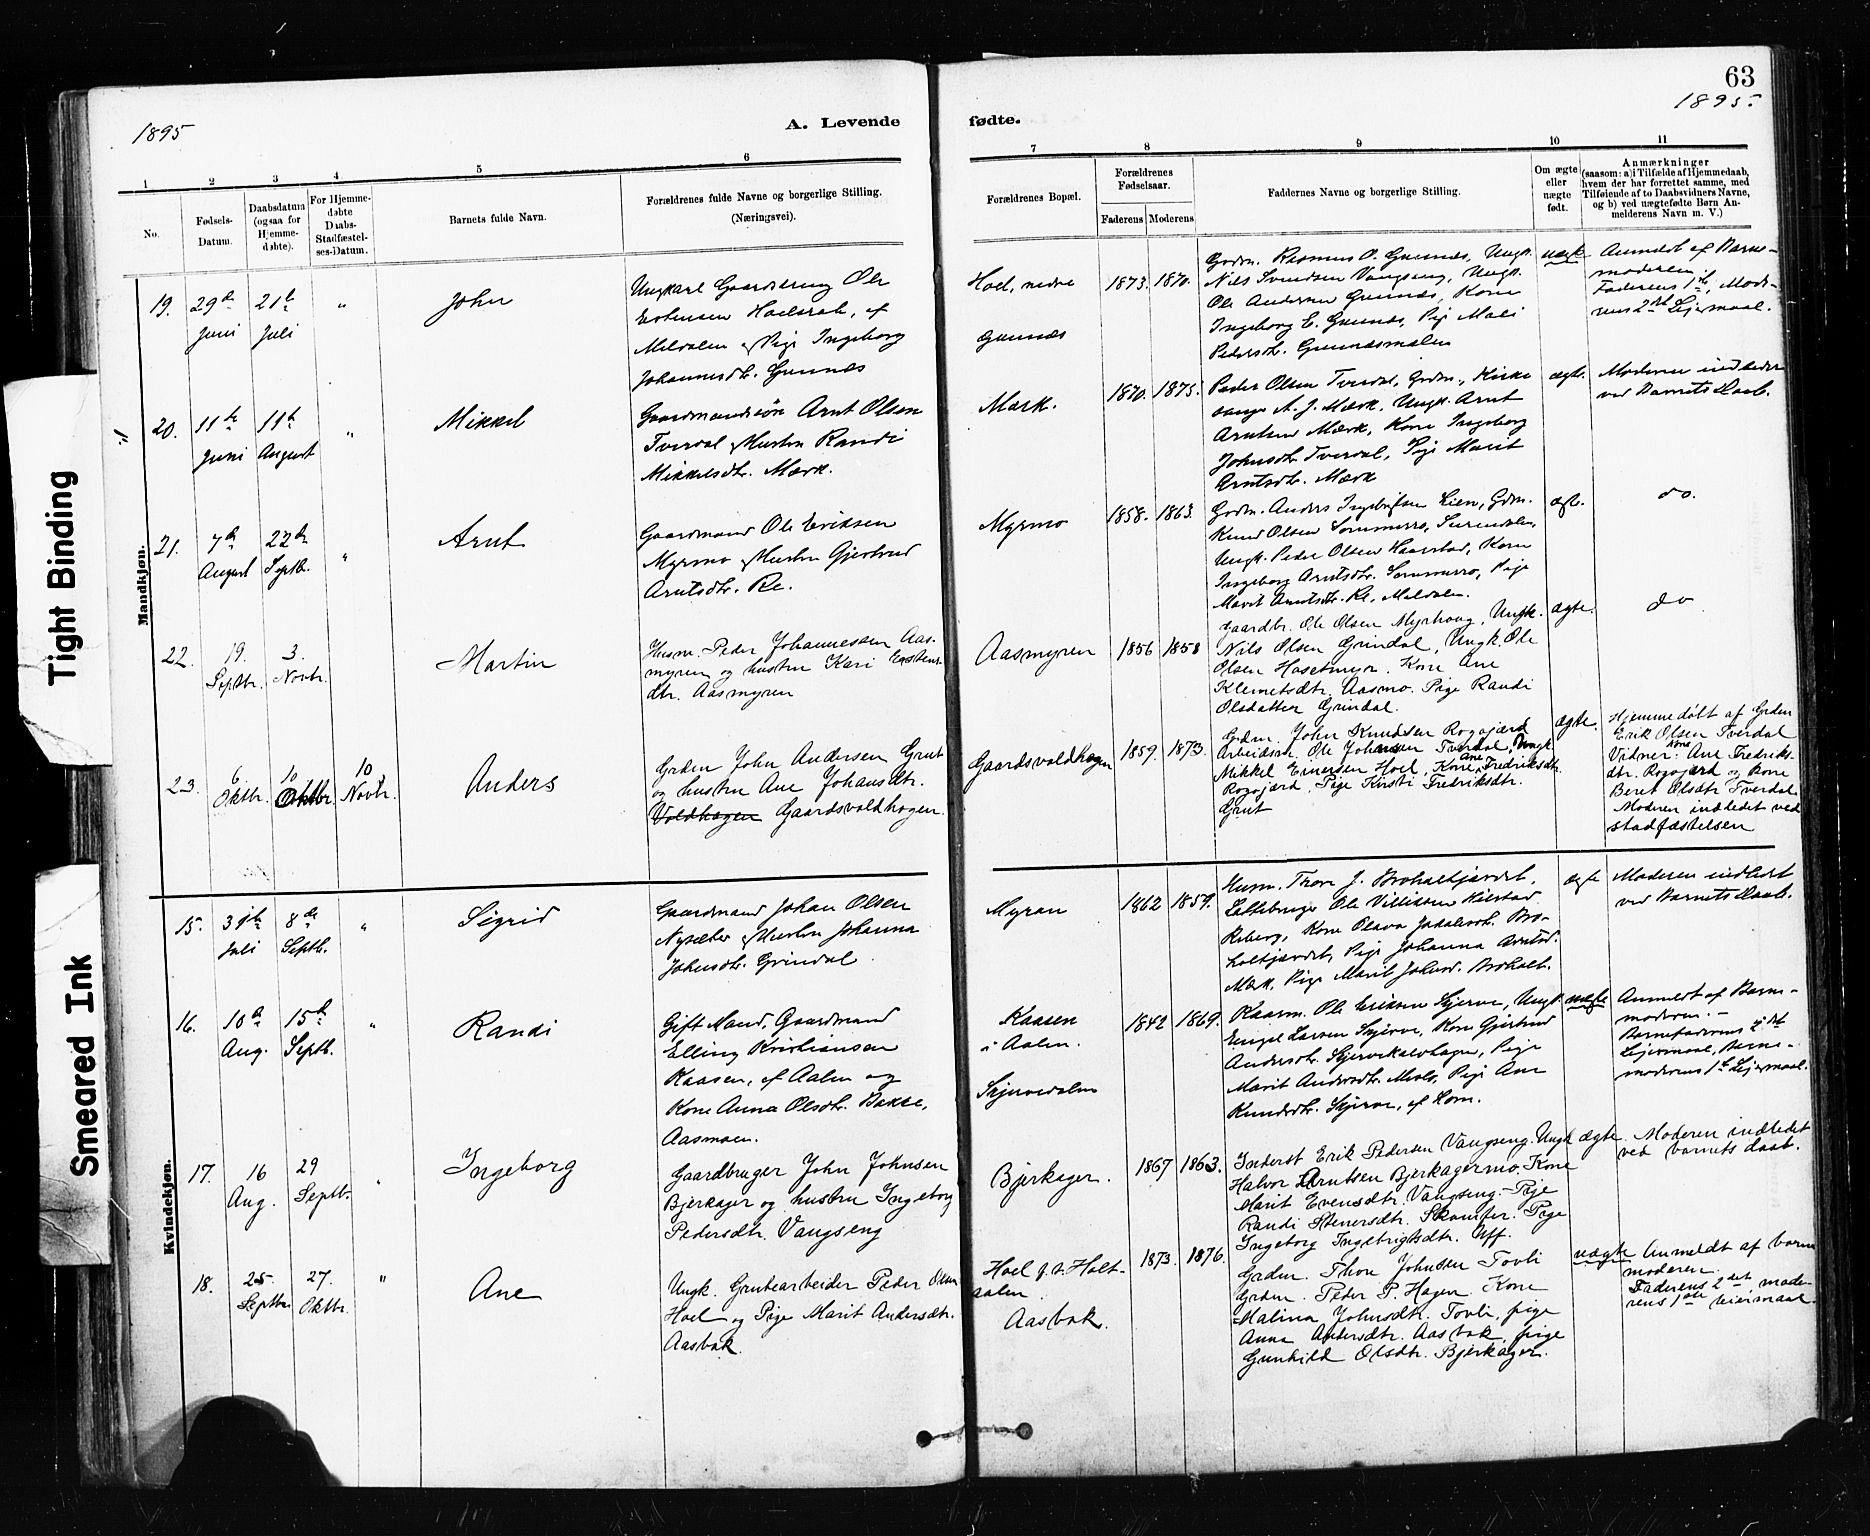 63
1895.
1895
A. Levende
fødte.
1
2
3
4
5
6
7
8
9
10
11
No.
Fødsels-
Datum.
Daabsdatum
(ogsaa for
Hjemme-
døbte).
For Hjemme-
døbte
Daabs-
Stadfæstel-
ses-Datum.
Barnets fulde Navn.
Forældrenes fulde Navne og borgerlige Stilling.
(Næringsvei).
Forældrenes Bopæl.
Forældrenes
Fødselsaar.
Faderens
Moderens
Faddernes Navne og borgerlige Stilling.
Om ægte
eller
uægte
født.
Anmærkninger
(saasom: a) i Tilfælde af Hjemmedaab,
hvem der har forrettet samme, med
Tilføiende af to Daabsvidners Navne,
og b) ved uægtefødte Børn An-
melderens Navn m. V.)
Tight Binding
Smeared Ink
Mandkjøn.
19.
29de
Juni
21de
Juli
"
John
Ungkarl Gaarddreng Ole
Estensen Hoelsrab, af
Meldalen & Pige Ingeborg
Johannesdtr. Gunnæs
Hoel, nedre
Gunnæs
1873.
1870.
Grdm. Rasmus O. Gunnæs, Ungk.
Nils Svendsen Vangseng, Ungk.
Ole Andersen Gunnæs, Kone
Ingeborg E. Gunnæs, Pige Mali
Pedersdtr. Gunnæsmelen
uægte
Anmeldt af Barne-
moderen.
Faderens 1ste, Mode-
rens 2det Leiermaal.
20.
11te
Juni
11te
August
"
Mikkel
Gaardmandssøn Arnt Olsen
Tverdal & Hustru Randi
Mikkelsdtr. Mærk.
Mærk.
1870.
1875.
Peder Olsen Tverdal, Grdm., Kirke
sanger A. J. Mærk, Ungk. Arnt
Arntsen Mærk, Kone Ingeborg
Johnsdtr. Tverdal, Pige Marit
Arntsdtr. Mærk
ægte.
Moderen indledet
ved Barnets Daab.
21.
7de
August
22de
Septb.
"
Arnt
Gaardmand Ole Eriksen
Myrmo & Hustru Gjertrud
Arntsdtr. Re.
Myrmo
1858.
1863.
Grdm. Anders Ingebrigtsen Lien, Grdm.
Knud Olsen Sommerro, Surendalen,
Ungk. Peder Olsen Haarstad, Kone
Ingeborg Arntsdtr. Sommerro, Pige
Marit Arntsdtr. Re, Meldalen.
ægte.
do.
22.
19.
Septbr.
3.
Novbr.
Martin
Husm. Peder Johannessen Aas-
myren og hustru Kari Estens-
dtr. Aasmyren
Aasmyren
1856
1858
Gaardbr. Ole Olsen Myrhaug, Ungk.
Nils Olsen Grindal, Ungk. Ole
Olsen Hosetmyr. Kone Ane
Klemetsdtr. Aasmo. Pige Randi
Olsdatter Grindal.
ægte.
do
23.
6
Oktbr.
10
Oktbr
10
Novbr.
Anders
Grdm John Andersen Grut
og hustru Ane Johansdtr.
Voldhagen Gaardsvoldhagen.
Gaardsvoldhagen
1859.
1873.
Grdm. John Knudsen Rogogjærd
Arbeidsm. Ole Johnsen Tverdal, Ungk
Mikkel Einersen Hoel, Kone Ane Fredriksdtr.
Rogogjærd, Pige Kirsti Fredriksdtr.
Grut
ægte.
Hjemmedøbt af Grdm
Erik Olsen Tverdal
Vidner: Kone Ane Fredriks-
dtr. Rogogjærd og Kone
Beret Olsdtr Tverdal
Moderen indledet ved
stadfæstelsen
Kvindekjøn.
15.
31te
Juli
8de
Septb.
"
Sigrid
Gaardmand Johan Olsen
Nysæter & Hustru Johanna
Johnsdtr. Grindal.
Myran
1862
1859.
Husm. Thore J. Broholtjærdet,
Ole Villissen
Reberg, Kone Olava Bro-
holtjærdet, Pige Johanna Arntsd.
Mærk, Pige Marit Johnsd. Broholt.
ægte
Moderen indledet
ved Barnets Daab.
16.
10de
Aug.
15de
Septb.
"
Randi
Gift Mand, Gaardmand
Elling Kristiansen
Kaasen, af Aalen og
Kone Anna Olsdtr. Bakke,
Aasmoen.
Kaasen
i Aalen.
Skjervedalen
1842
1869.
Kaarm. Ole Eriksen Skjerve, Ungk.
Engel Larsen Skjerve, Kone Gjertrud
Andersdtr. Skjervekalvhagen, Pige
Marit Andersdtr. Moslo, Pige Ane
Knudsdtr. Skjerve, af Hom.
uægte
Anmeldt af Barne-
moderen. -
Barnefaderens 2det
Leiermaal, Barne-
moderens 1ste Leiermaal.
17.
16
Aug.
29
Septb.
"
Ingeborg
Gaardbruger John Johnsen
Bjerkager og hustru Ingeborg
Pedersdtr. Vangseng
Bjerkager.
1867
1863.
Inderst Erik Pedersen Vangseng. Ungk
Halvor Arntsen Bjerkagermo, Kone
Marit Evensdtr. Vangseng. Pige
Randi Stenersdtr. Skamfer. Pige
Ingeborg Ingebrigtsdtr. Uff.
ægte.
Moderen indledet
ved barnets daab.
18.
25.
Septbr
27.
Oktbr.
"
Ane
Ungk. Grubearbeider Peder Olsen
Hoel og Pige Marit Andersdtr.
Aasbak.
Hoel p. v. Holt-
aalen.
Aasbak.
1873.
1876.
Grdm. Thore Johnsen Tovli
Grdm. Peder P. Hagen. Kone
Malina Johnsdtr. Tovli, pige
Anna Andersdtr. Aasbak, pige
Gunhild Olsdtr. Bjerkager.
uægte
Anmeldt af barne
moderen.
Faderens 2det, mode-
rens 1ste leiermaal.